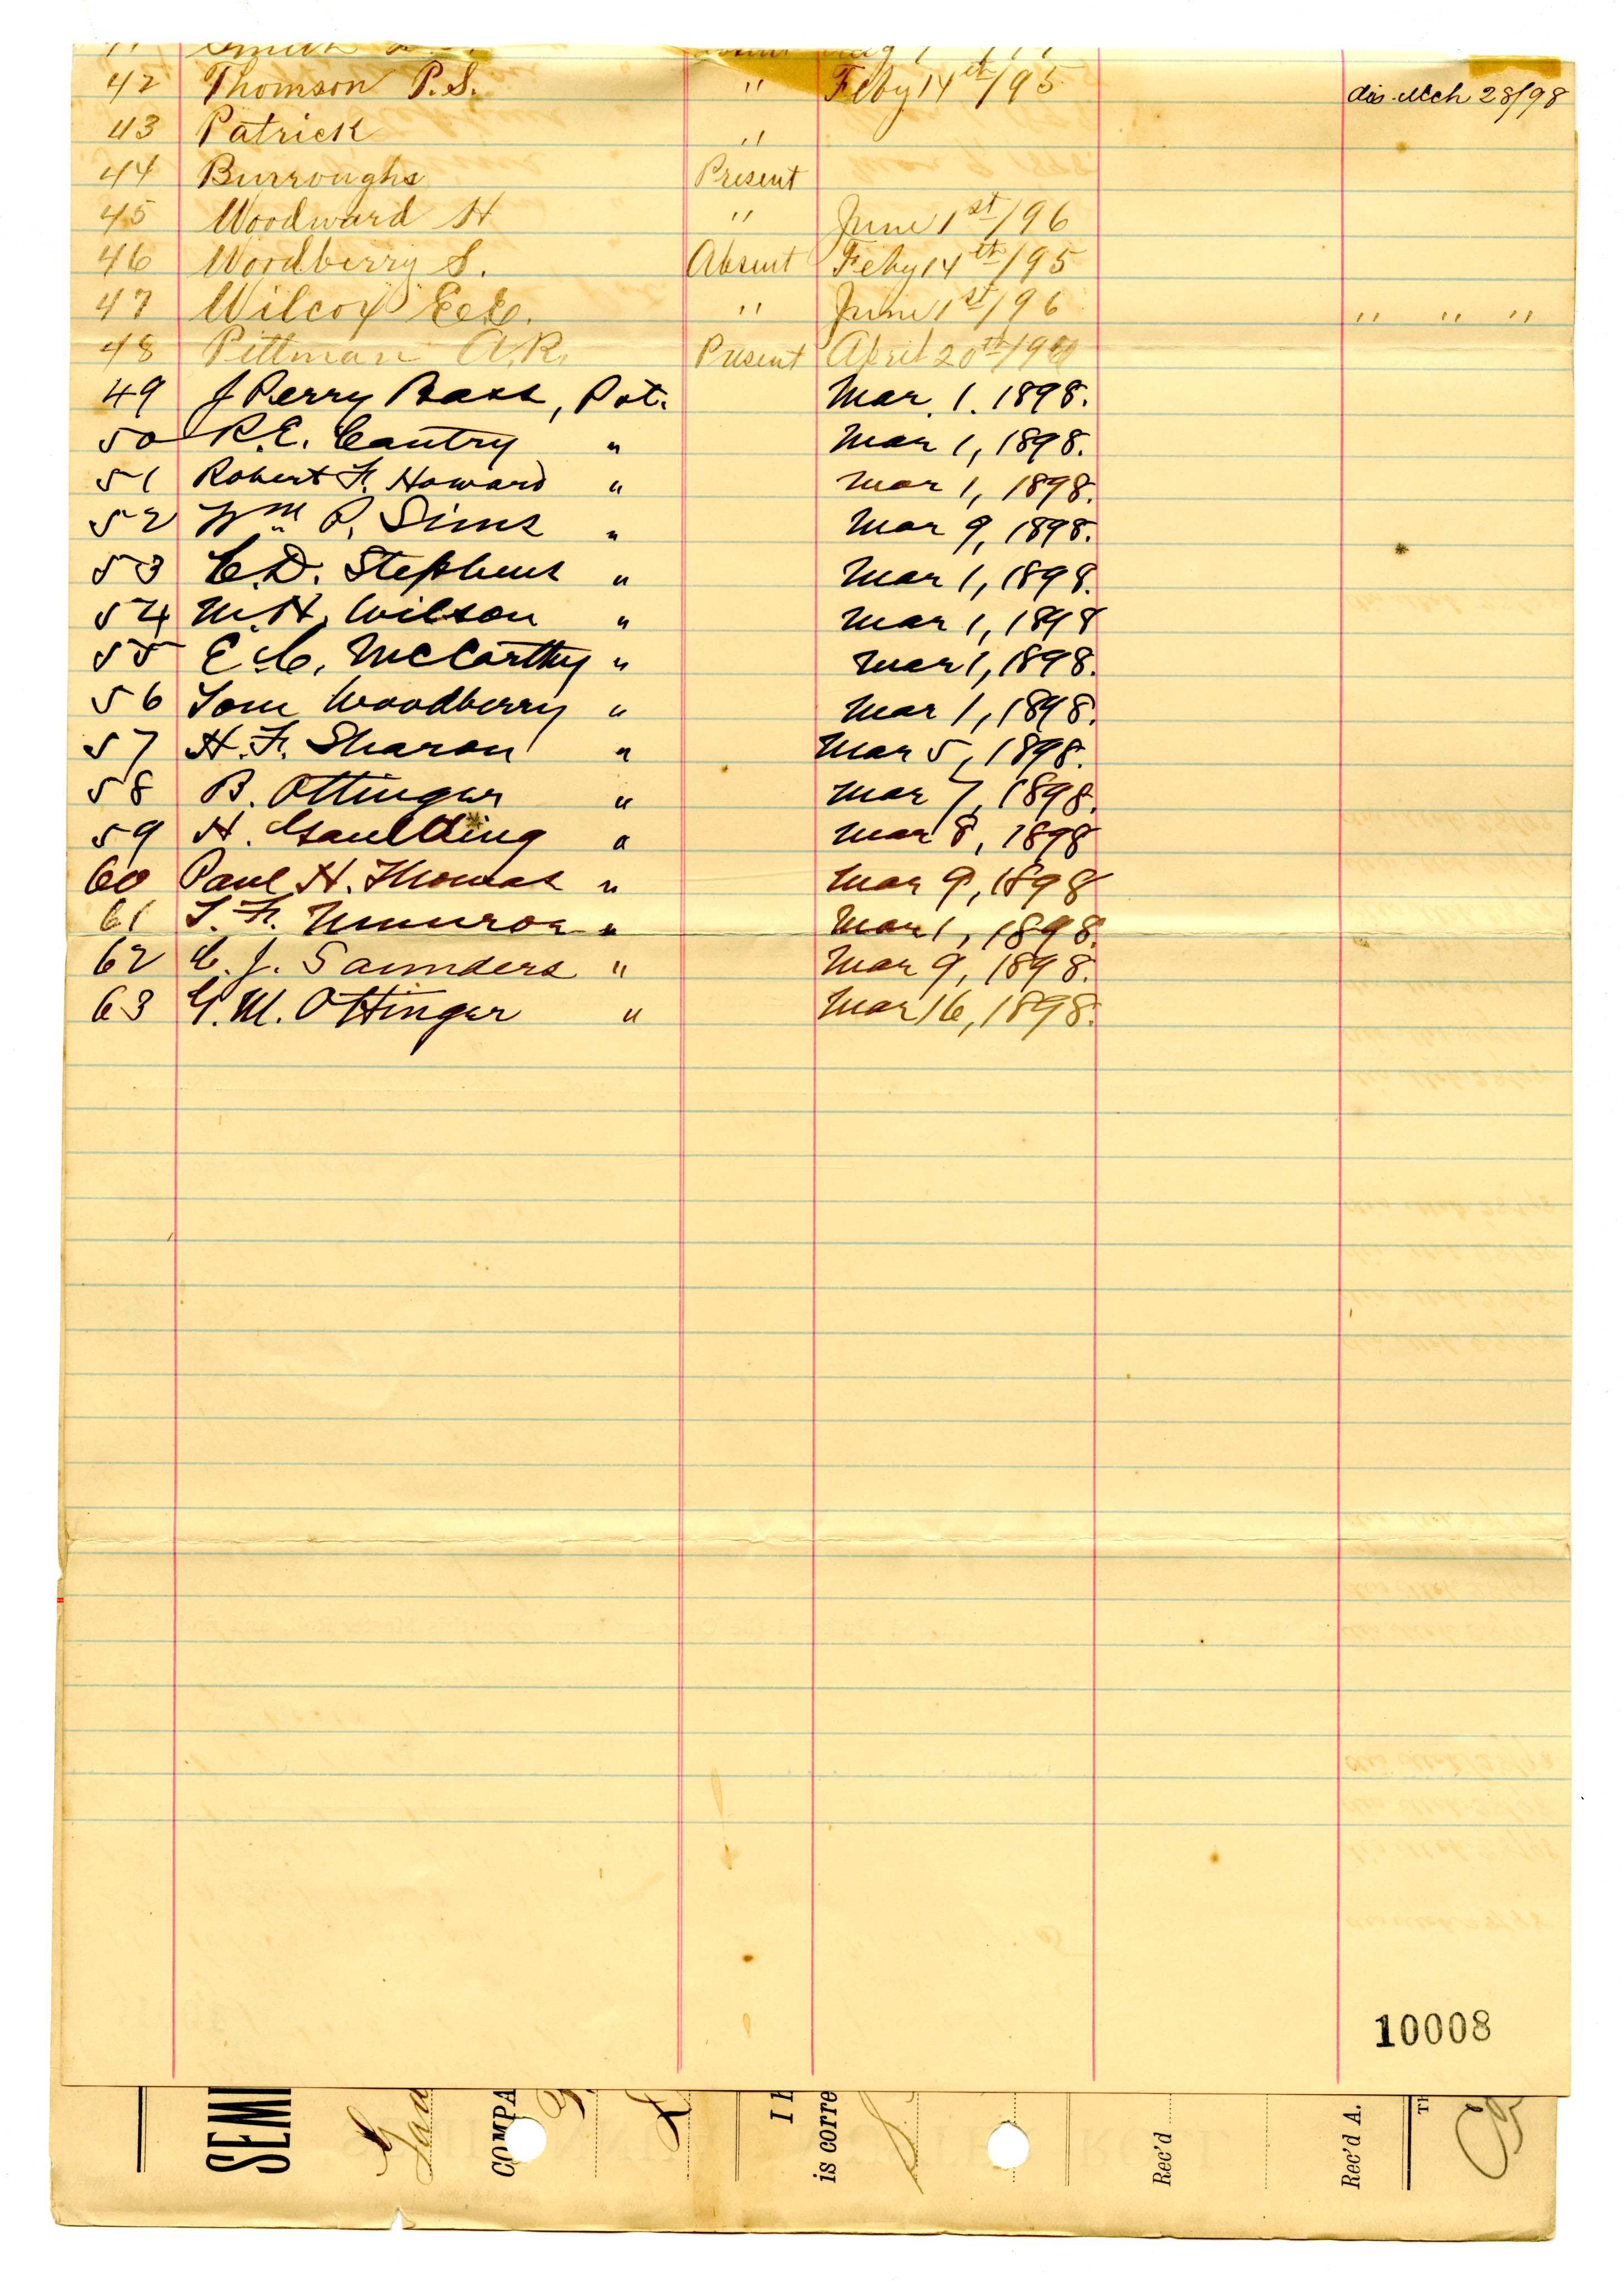 Smith
42 Thomson P.S. " Feby 14th/95 dis. Mch 28/98
43 Patrick "
44 Burroughs Present
45 Woodward H " June 1st/96
46 Woodberry S. Absent Feby 14th/95
47 Wilcox E.C. " June 1st/96 " " "
48 Pittman A.R. Present April 20th
49 J Perry Bass, Pvt. Mar. 1. 1898.
50 R.E. Cantry " Mar 1, 1898.
51 Robert F. Howard " Mar 1, 1898.
52 Wm P. Sims " Mar 9, 1898.
53 C.D. Stephens " Mar 1, 1898.
54 M.H. Wilson " Mar 1, 1898
55 E.C. McCarthy " Mar 1, 1898.
56 Tom Woodberry " Mar 1, 1898.
57 H.F. Sharon " Mar 5, 1898.
58 B. Ottinger " Mar 7, 1898.
59 H. Gaulding " Mar 8, 1898
60 Paul H. Thomas " Mar 9, 1898
61 T.F. Munroe " Mar 1, 1898.
62 C.J. Saunders " Mar 9, 1898.
63 G.M. Ottinger " Mar 16, 1898.
10008
SEMI
COMPA
I h
is corre
Rec'd
Rec'd A.